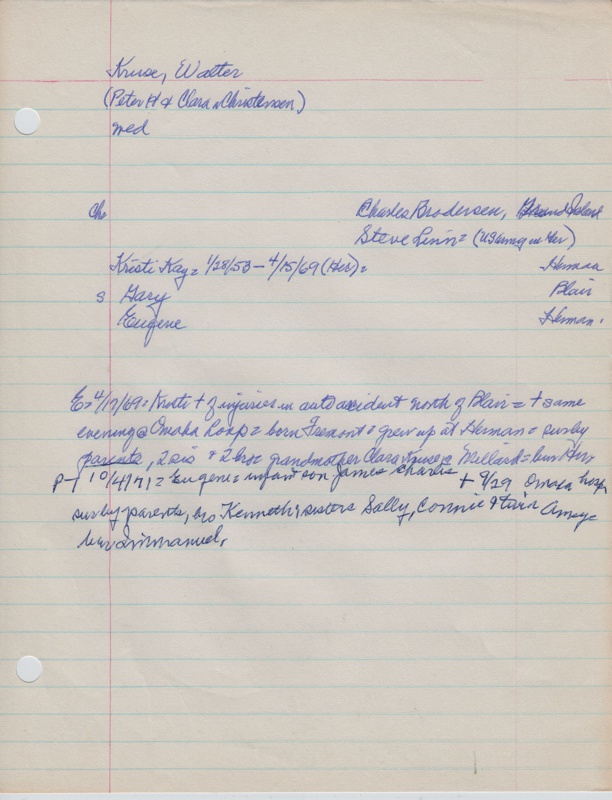 Kruse, Walter
(Peter H & Clara Christensen)
wed
Ch Charles Brodersen, Grand Island
Steve Linn = (US Army in Ger)
Kristi Kay = 1/28/53 - 4/15/69 (Her) = Herman
s Gary Blair
Eugene Herman.
E = 4/17/69 = Kristi + of injuries in auto accident north of Blair = + same
evening @ Omaha hosp = born Fremont = grew up at Herman = surv by
parents, 2 sis & 2 bro = grandmother Clara Kruse @ Millard = bur Her
P-T 10/4/71 = Eugene = infant son James Charles + 9/29 Omaha hosp
surv by parents, bro Kenneth, sisters Sally, Connie & twin Amaye
bur Immanuel.